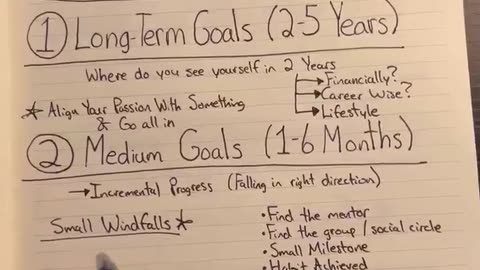 ① Long-Term Goals (2-5 Years)
Where do you see yourself in 2 Years
→ Financially?
→ Career Wise?
→ Lifestyle
* Align Your Passion With Something
& Go all in
② Medium Goals (1-6 Months)
→ Incremental Progress (Falling in right direction)
Small Windfalls *
• Find the mentor
• Find the group / social circle
• Small Milestone
• Habit Achieved